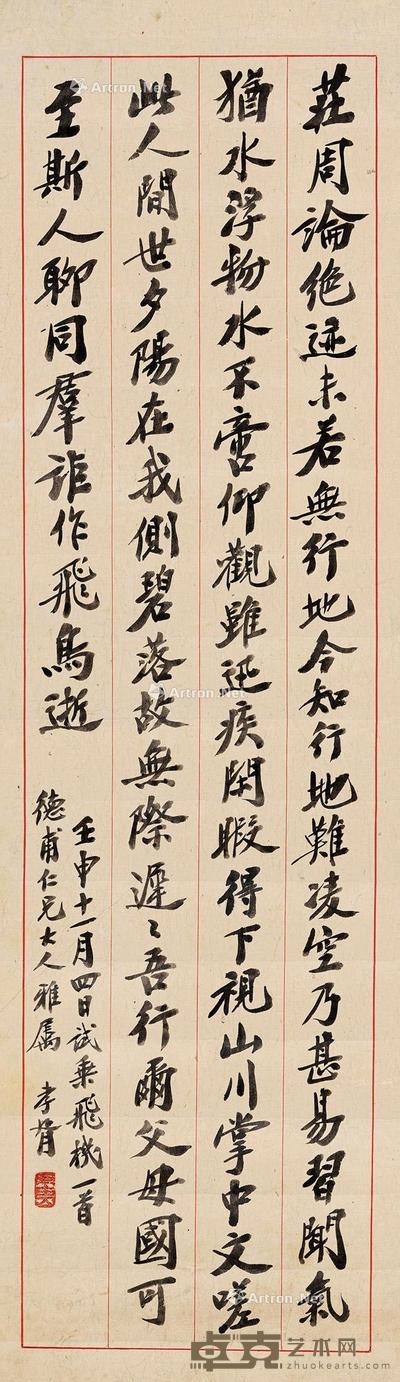 莊周論絕迹未若無行地今知行地難凌空乃甚易習聞氣
猶水浮物水不啻仰觀雖迅疾閑暇得下視山川掌中文嗟
此人間世夕陽在我側碧落故無際遲〻吾行爾父母國可
至斯人聊同羣詎作飛鳥逝
壬申十一月四日試乘飛機一首
德甫仁兄大人雅属 孝胥
Artron.Net
Artron.Net
Artron.Net
Artron.Net
Artron.Net
Artron.Net
卓克艺术网
zhuokearts.com